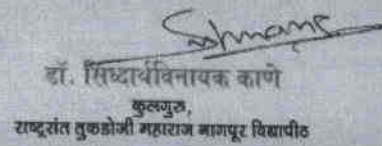 डॉ. सिध्दार्थविनायक काणे
कुलगुरु,
राष्ट्रसंत तुकडोजी महाराज नागपूर विद्यापीठ